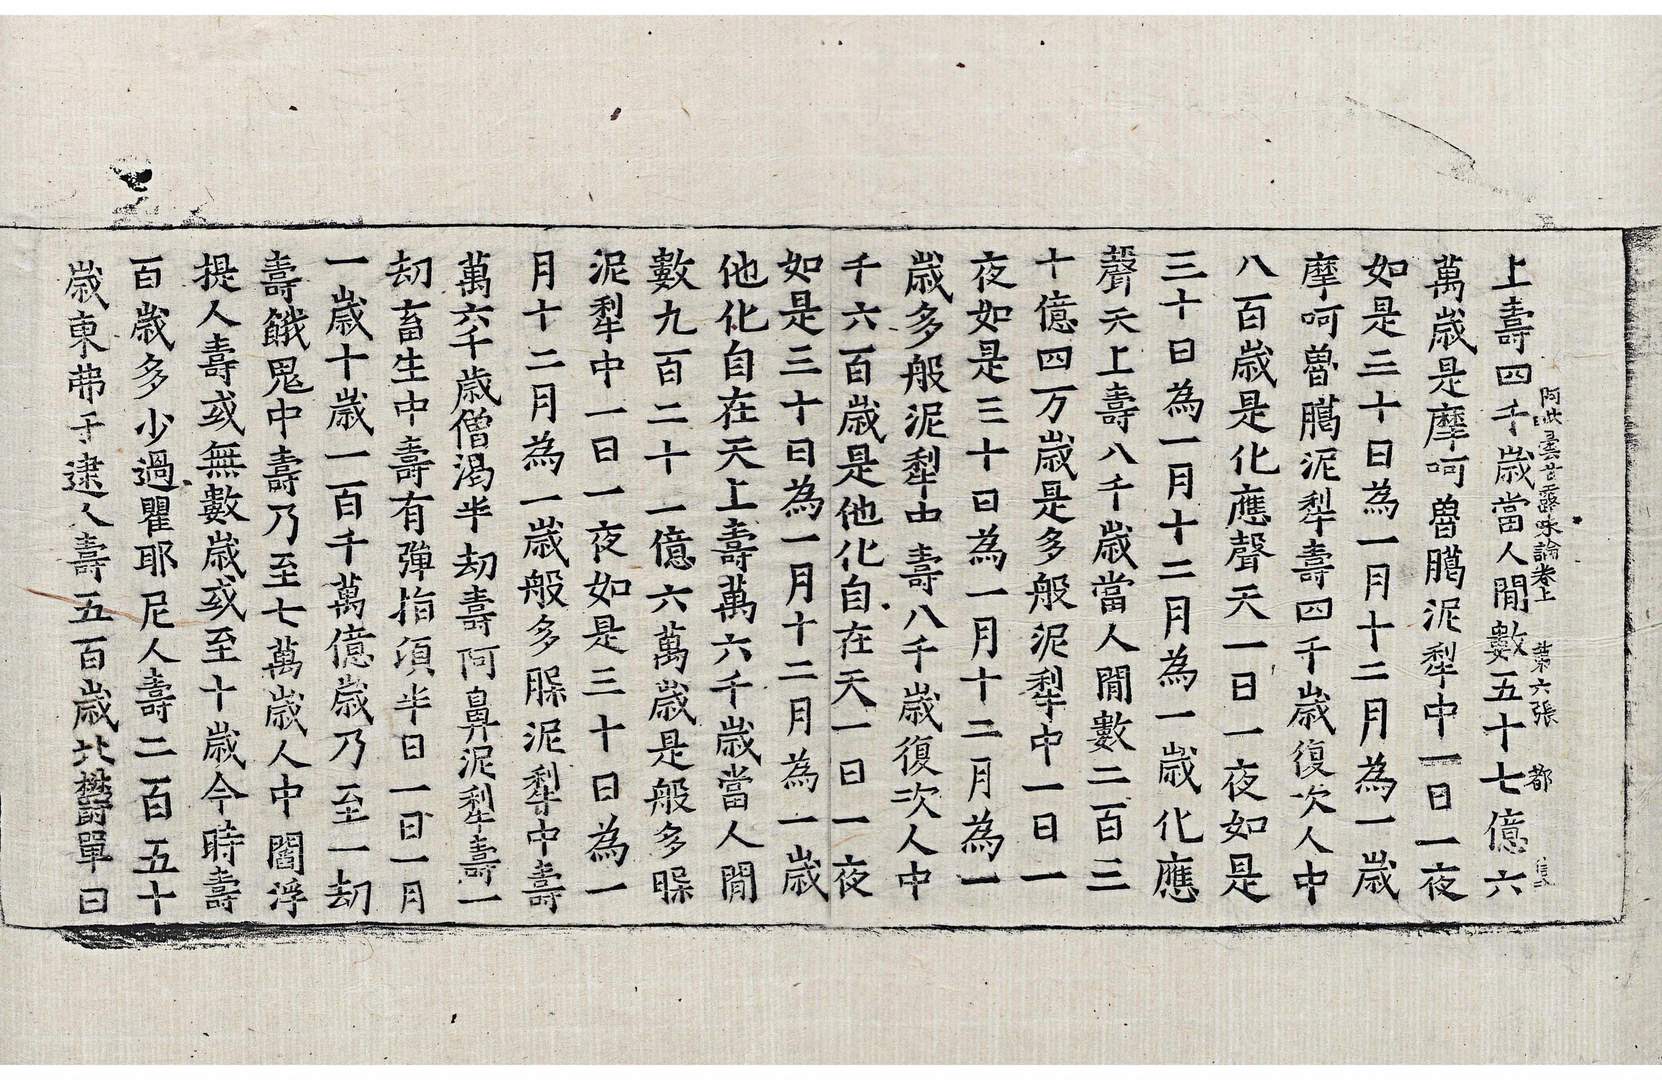 阿毗曇甘露味論卷上　第六張　都
上壽四千歲當人閒數五十七億六
萬歲是摩呵魯臈泥犁中一日一夜
如是三十日為一月十二月為一歲
摩呵魯臈泥犁壽四千歲復次人中
八百歲是化應聲天一日一夜如是
三十日為一月十二月為一歲化應
聲天上壽八千歲當人閒數二百三
十億四万歲是多般泥犁中一日一
夜如是三十日為一月十二月為一
歲多般泥犁中壽八千歲復次人中
千六百歲是他化自在天一日一夜
如是三十日為一月十二月為一歲
他化自在天上壽萬六千歲當人閒
數九百二十一億六萬歲是般多𣇈
泥犁中一日一夜如是三十日為一
月十二月為一歲般多𣇈泥犁中壽
萬六千歲僧渴半劫壽阿鼻泥犁壽一
劫畜生中壽有彈指須半日一日一月
一歲十歲一百千萬億歲乃至一劫
壽餓鬼中壽乃至七萬歲人中閻浮
提人壽或無數歲或至十歲今時壽
百歲多少過瞿耶尼人壽二百五十
歲東弗于逮人壽五百歲北欝單曰